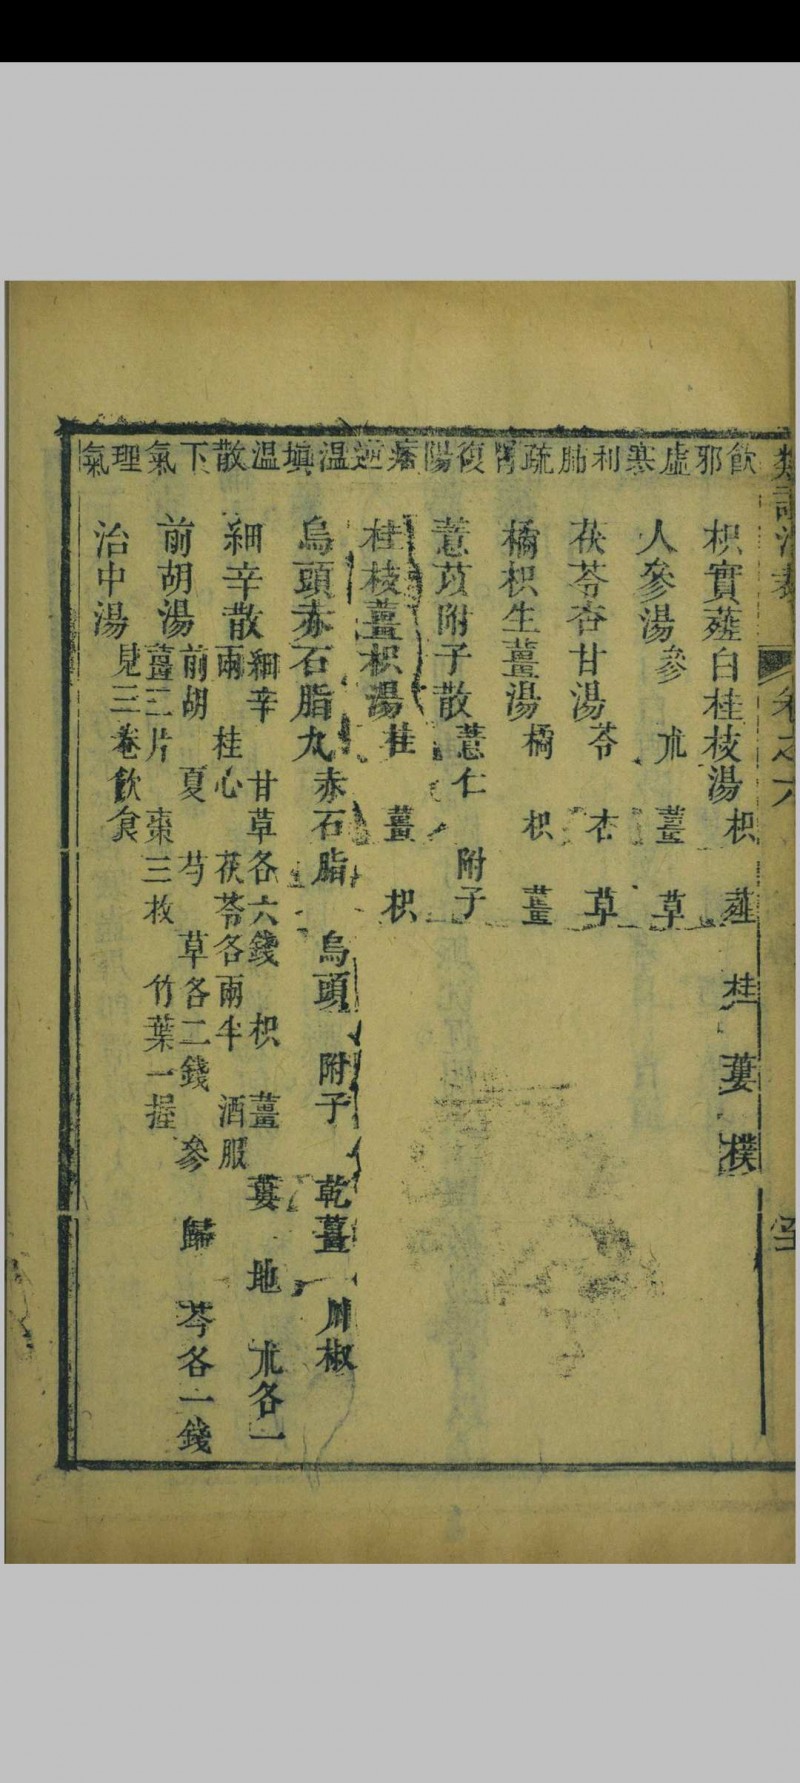 類證治裁 卷之六
飲邪 枳實薤白桂枝湯 枳 薤 桂 蔞 樸
虛寒 人參湯 參 朮 薑 草
利肺 茯苓杏甘湯 苓 杏 草
疏胃 橘枳生薑湯 橘 枳 薑
復陽 薏苡附子散 薏仁 附子
痞逆 桂枝薑枳湯 桂 薑 枳
溫填 烏頭赤石脂丸 赤石脂 烏頭 附子 乾薑 川椒
溫散 細辛散 細辛 甘草各六錢 枳 薑 蔞 地 朮各一
兩 桂心 茯苓各兩半 酒服
下氣 前胡湯 前胡 夏 芍 草各二錢 參 歸 芩各一錢
薑三片 棗三枚 竹葉一握
理氣 治中湯 見三卷飲食